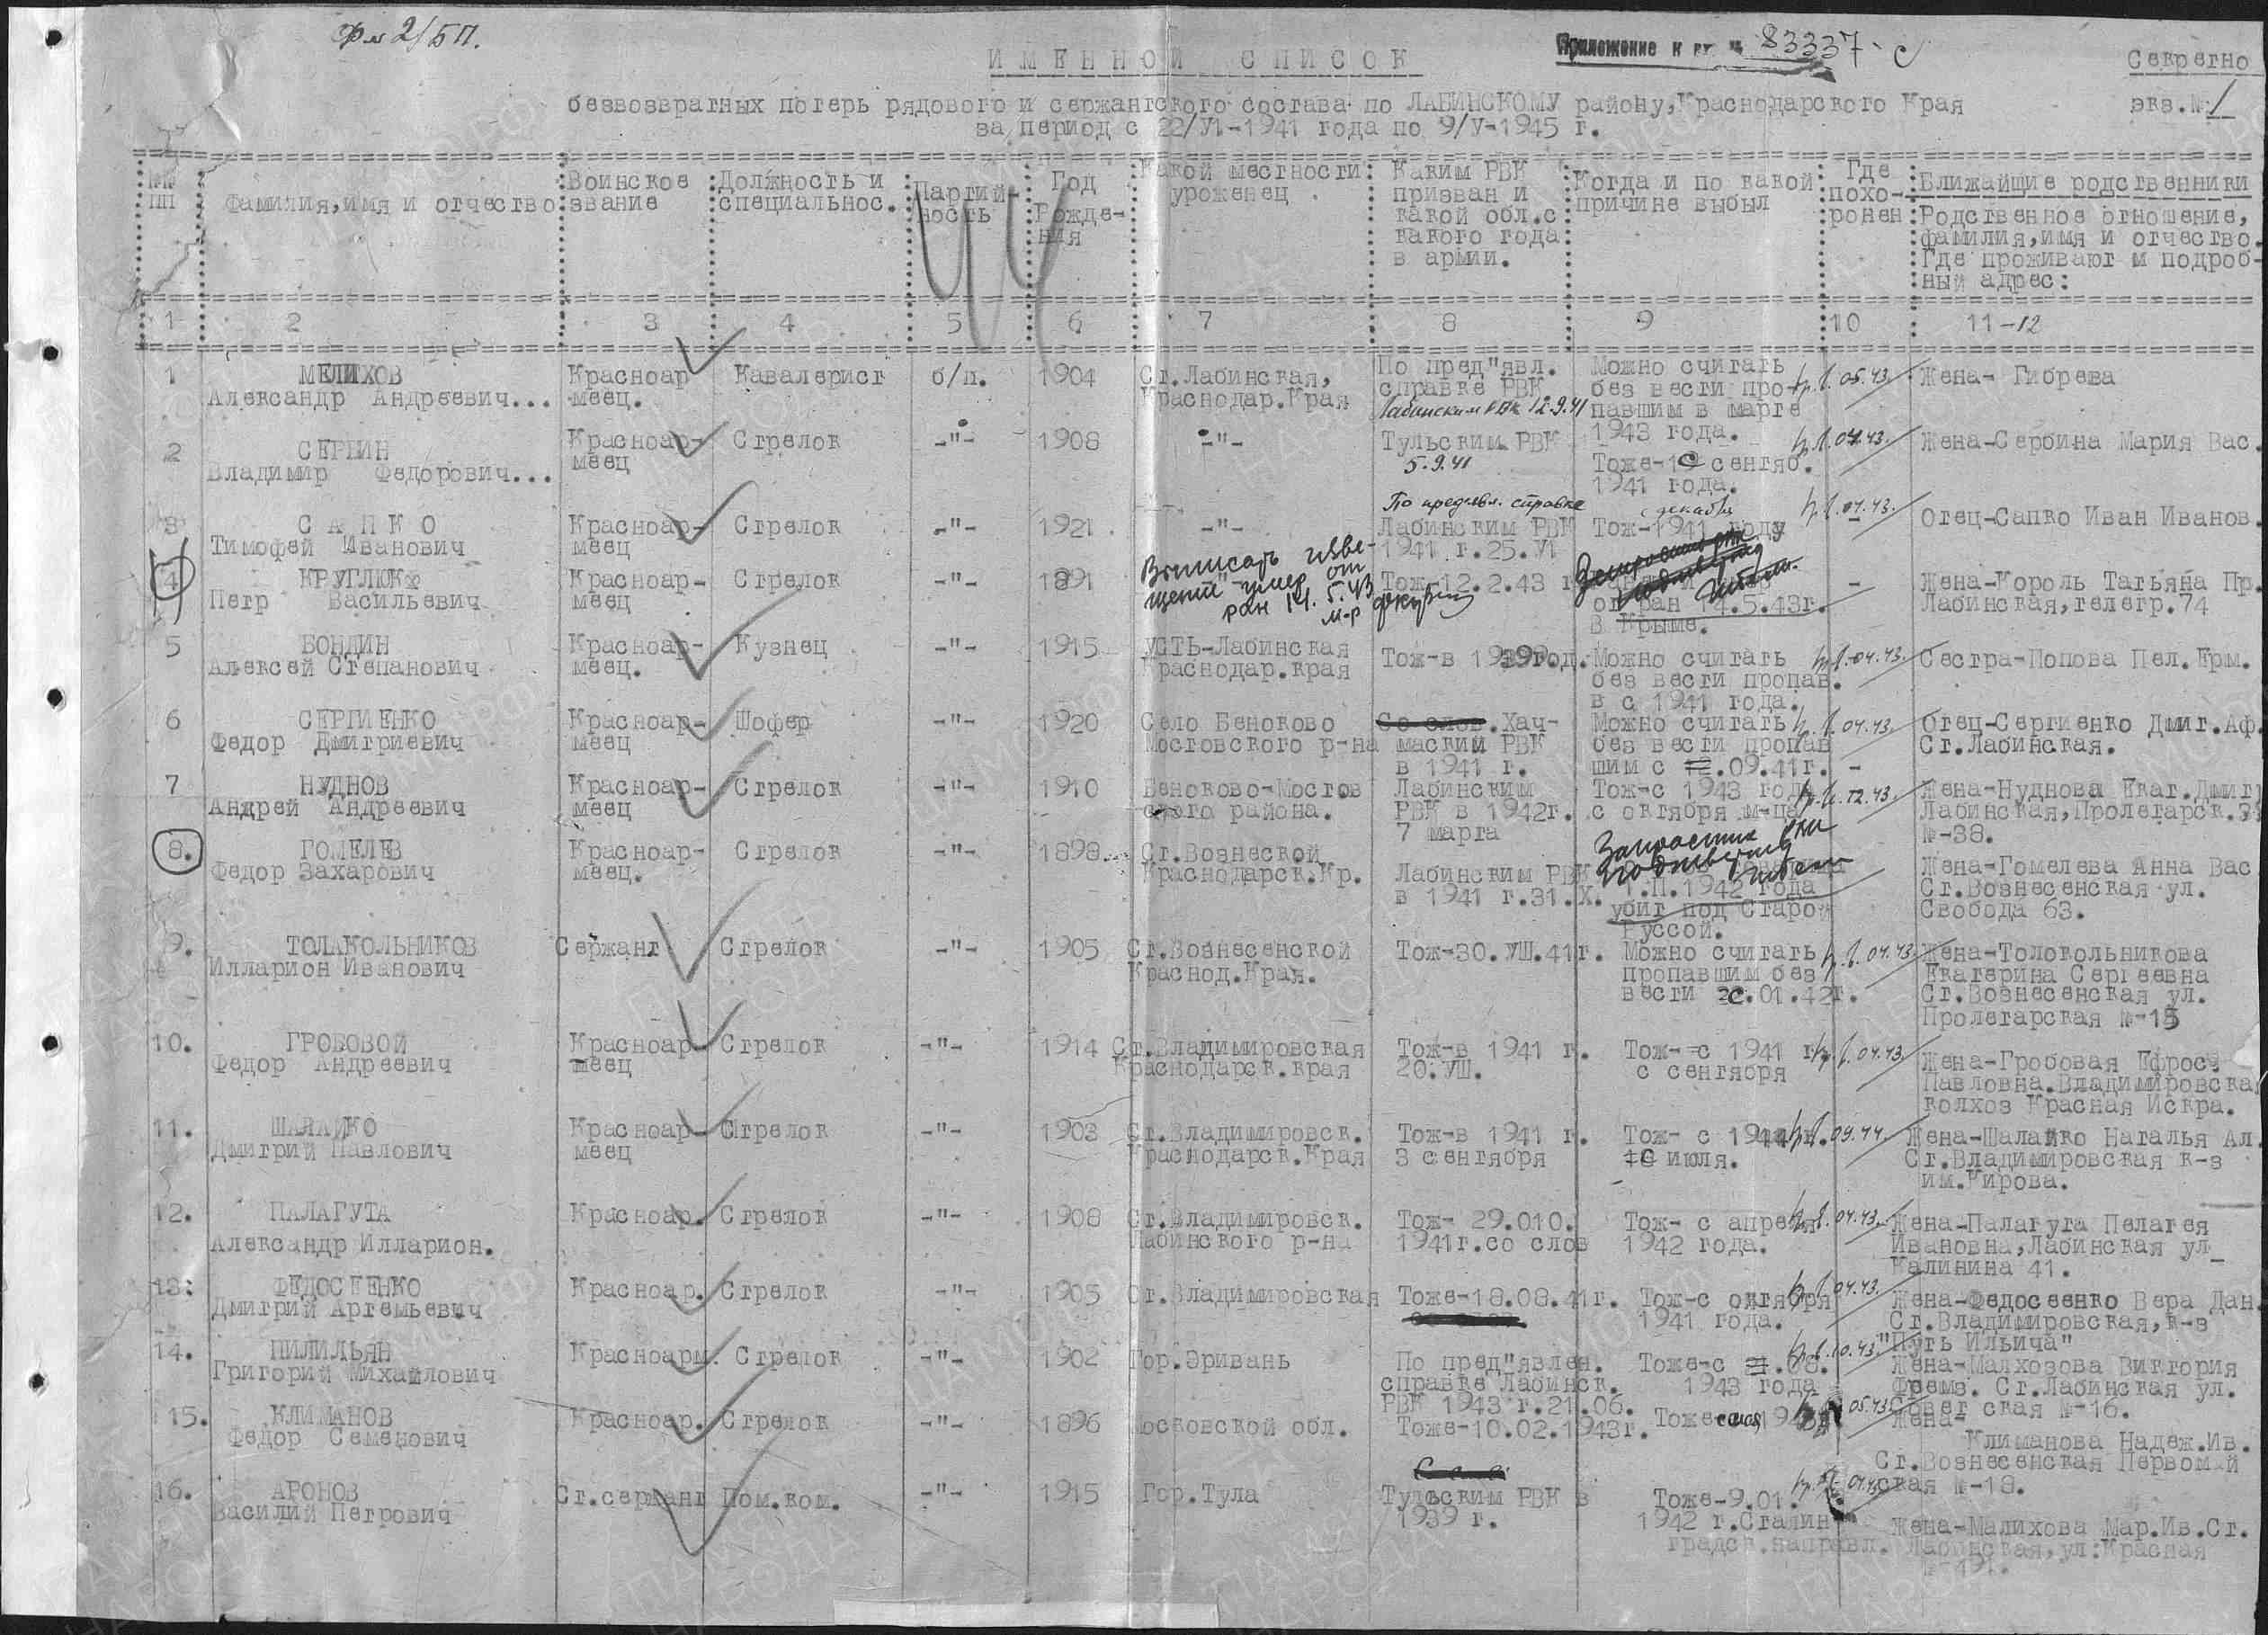 Фм 2/БП.
Приложение к вх № 83337-с
ИМЕННОЙ СПИСОК
Секретно
безвозвратных потерь рядового и сержантского состава по ЛАБИНСКОМУ району, Краснодарского Края
экз.№ 1
за период с 22/У1-1941 года по 9/У-1945 г.
№№ пп
Фамилия, имя и отчество
Воинское звание
Должность и специальнос.
Партийность
Год Рождения
Какой местности уроженец
Каким РВК призван и какой обл. с какого года в армии.
Когда и по какой причине выбыл
Где похоронен
Ближайшие родственники
Родственное отношение, фамилия, имя и отчество. Где проживают и подробный адрес:
1 2 3 4 5 6 7 8 9 10 11-12
1 МЕЛИХОВ
Александр Андреевич...
Красноармеец.
Кавалерист
б/п.
1904
Ст.Лабинская,
Краснодар.Края
По пред"явл.
справке РВК
Лабинским РВК 12.9.41
Можно считать
без вести про-
павшим в марте
1943 года.
05.43.
Жена- Гибрева
2 СЕРБИН
Владимир Федорович...
Красноар-
меец
Стрелок
-"-
1908
-"-
Тульским РВК
5.9.41
Тоже- сентяб.
1941 года.
04.43.
Жена-Сербина Мария Вас.
3 САПКО
Тимофей Иванович
Красноар-
меец
Стрелок
-"-
1921
-"-
По предъявл. справке
Лабинским РВК
1941 г.25.У1
с декабря
Тож-1941 году
04.43.
-
Отец-Сапко Иван Иванов.
4 КРУГЛЮК
Петр Васильевич
Красноар-
меец
Стрелок
-"-
1891
Выписать изве-
щение умер от
ран 14.5.43
м-р
Тож-12.2.43 г
от ран 14.5.43г.
В Крыме.
-
Жена-Король Татьяна Пр.
Лабинская, телегр.74
5 БОНДИН
Алексей Степанович
Красноар-
меец.
Кузнец
-"-
1915
УСТЬ-Лабинская
Краснодар.края
Тож-в 1939год.
Можно считать
без вести пропав.
в с 1941 года.
04.43.
Сестра-Попова Пел.Ерм.
6 СЕРГИЕНКО
Федор Дмитриевич
Красноар-
меец
Шофер
-"-
1920
Село Беноково
Мостовского р-на
Хач-
маский РВК
в 1941 г.
Можно считать
без вести пропав
шим с .09.41г.
04.43.
-
Отец-Сергиенко Дмит.Аф.
Ст.Лабинская.
7 НУДНОВ
Андрей Андреевич
Красноар-
меец
Стрелок
-"-
1910
Беноково-Мостов
ского района.
Лабинским
РВК в 1942г.
7 марта
Тож-с 1943 года
с октября м-ца
12.43.
Жена-Нуднова Екат.Дмит
Лабинская,Пролетарск.
№-38.
8. ГОМЕЛЕВ
Федор Захарович
Красноар-
меец.
Стрелок
-"-
1898
Ст.Вознеской
Краснодарск.Кр.
Лабинским РВК
в 1941 г.31.Х.
1942 года
убит под Старой
Руссой.
Жена-Гомелева Анна Вас
Ст.Вознесенская ул.
Свобода 63.
9. ТОЛАКОЛЬНИКОВ
Илларион Иванович
Сержант
Стрелок
-"-
1905
Ст.Вознесенской
Краснод.Края.
Тож-30.УШ.41г.
Можно считать
пропавшим без
вести с.01.42г.
04.43.
Жена-Толокольникова
Екатерина Сергеевна
Ст.Вознесенская ул.
Пролетарская №-15
10. ГРОБОВОЙ
Федор Андреевич
Красноар-
меец
Стрелок
-"-
1914
Ст.Владимировская
Краснодарск.края
Тож-в 1941 г.
20.УШ.
Тож-с 1941 г.
с сентября
04.43.
Жена-Гробовая Ефрос.
Павловна.Владимировска
колхоз Красная Искра.
11. ШАЛАЙКО
Дмитрий Павлович
Красноар-
меец
Стрелок
-"-
1903
Ст.Владимировск.
Краснодарск.Края
Тож-в 1941 г.
3 сентября
Тож- с 1944 г.
июля.
09.44.
Жена-Шалайко Наталья Ал.
Ст.Владимировская к-з
им.Кирова.
12. ПАЛАГУТА
Александр Илларион.
Красноар.
Стрелок
-"-
1908
Ст.Владимировск.
Лабинского р-на
Тож- 29.010.
1941г.со слов
Тож- с апреля
1942 года.
04.43.
Жена-Палагута Пелагея
Ивановна,Лабинская ул
Калинина 41.
13. ФЕДОСЕЕНКО
Дмитрий Артемьевич
Красноар.
Стрелок
-"-
1905
Ст.Владимировская
Тоже-18.08.41г.
Тож-с октября
1941 года.
04.43.
Жена-Федосеенко Вера Дан.
Ст.Владимировская,к-з
"Путь Ильича"
14. ПИЛИЛЬЯН
Григорий Михайлович
Красноарм.
Стрелок
-"-
1902
Гор.Эривань
По пред"явлен.
справке Лабинск.
РВК 1943 г.21.06.
Тоже-с .08.
1943 года
10.43.
Жена-Малхозова Виктория
Фремз. Ст.Лабинская ул.
Совет ская №-16.
15. КЛИМАНОВ
Федор Семенович
Красноар.
Стрелок
-"-
1896
Московской обл.
Тоже-10.02.1943г.
Тоже
05.43
Жена-
Климанова Надеж.Ив.
Ст.Вознесенская Первомай
ская №-18.
16. АРОНОВ
Василий Петрович
Ст.сержант
Пом.ком.
-"-
1915
Гор.Тула
Тульским РВК в
1939 г.
Тоже-9.01.
1942 г.Сталин
градск.направл.
04.43
Жена-Малихова Мар.Ив.Ст.
Лабинская,ул:Красная